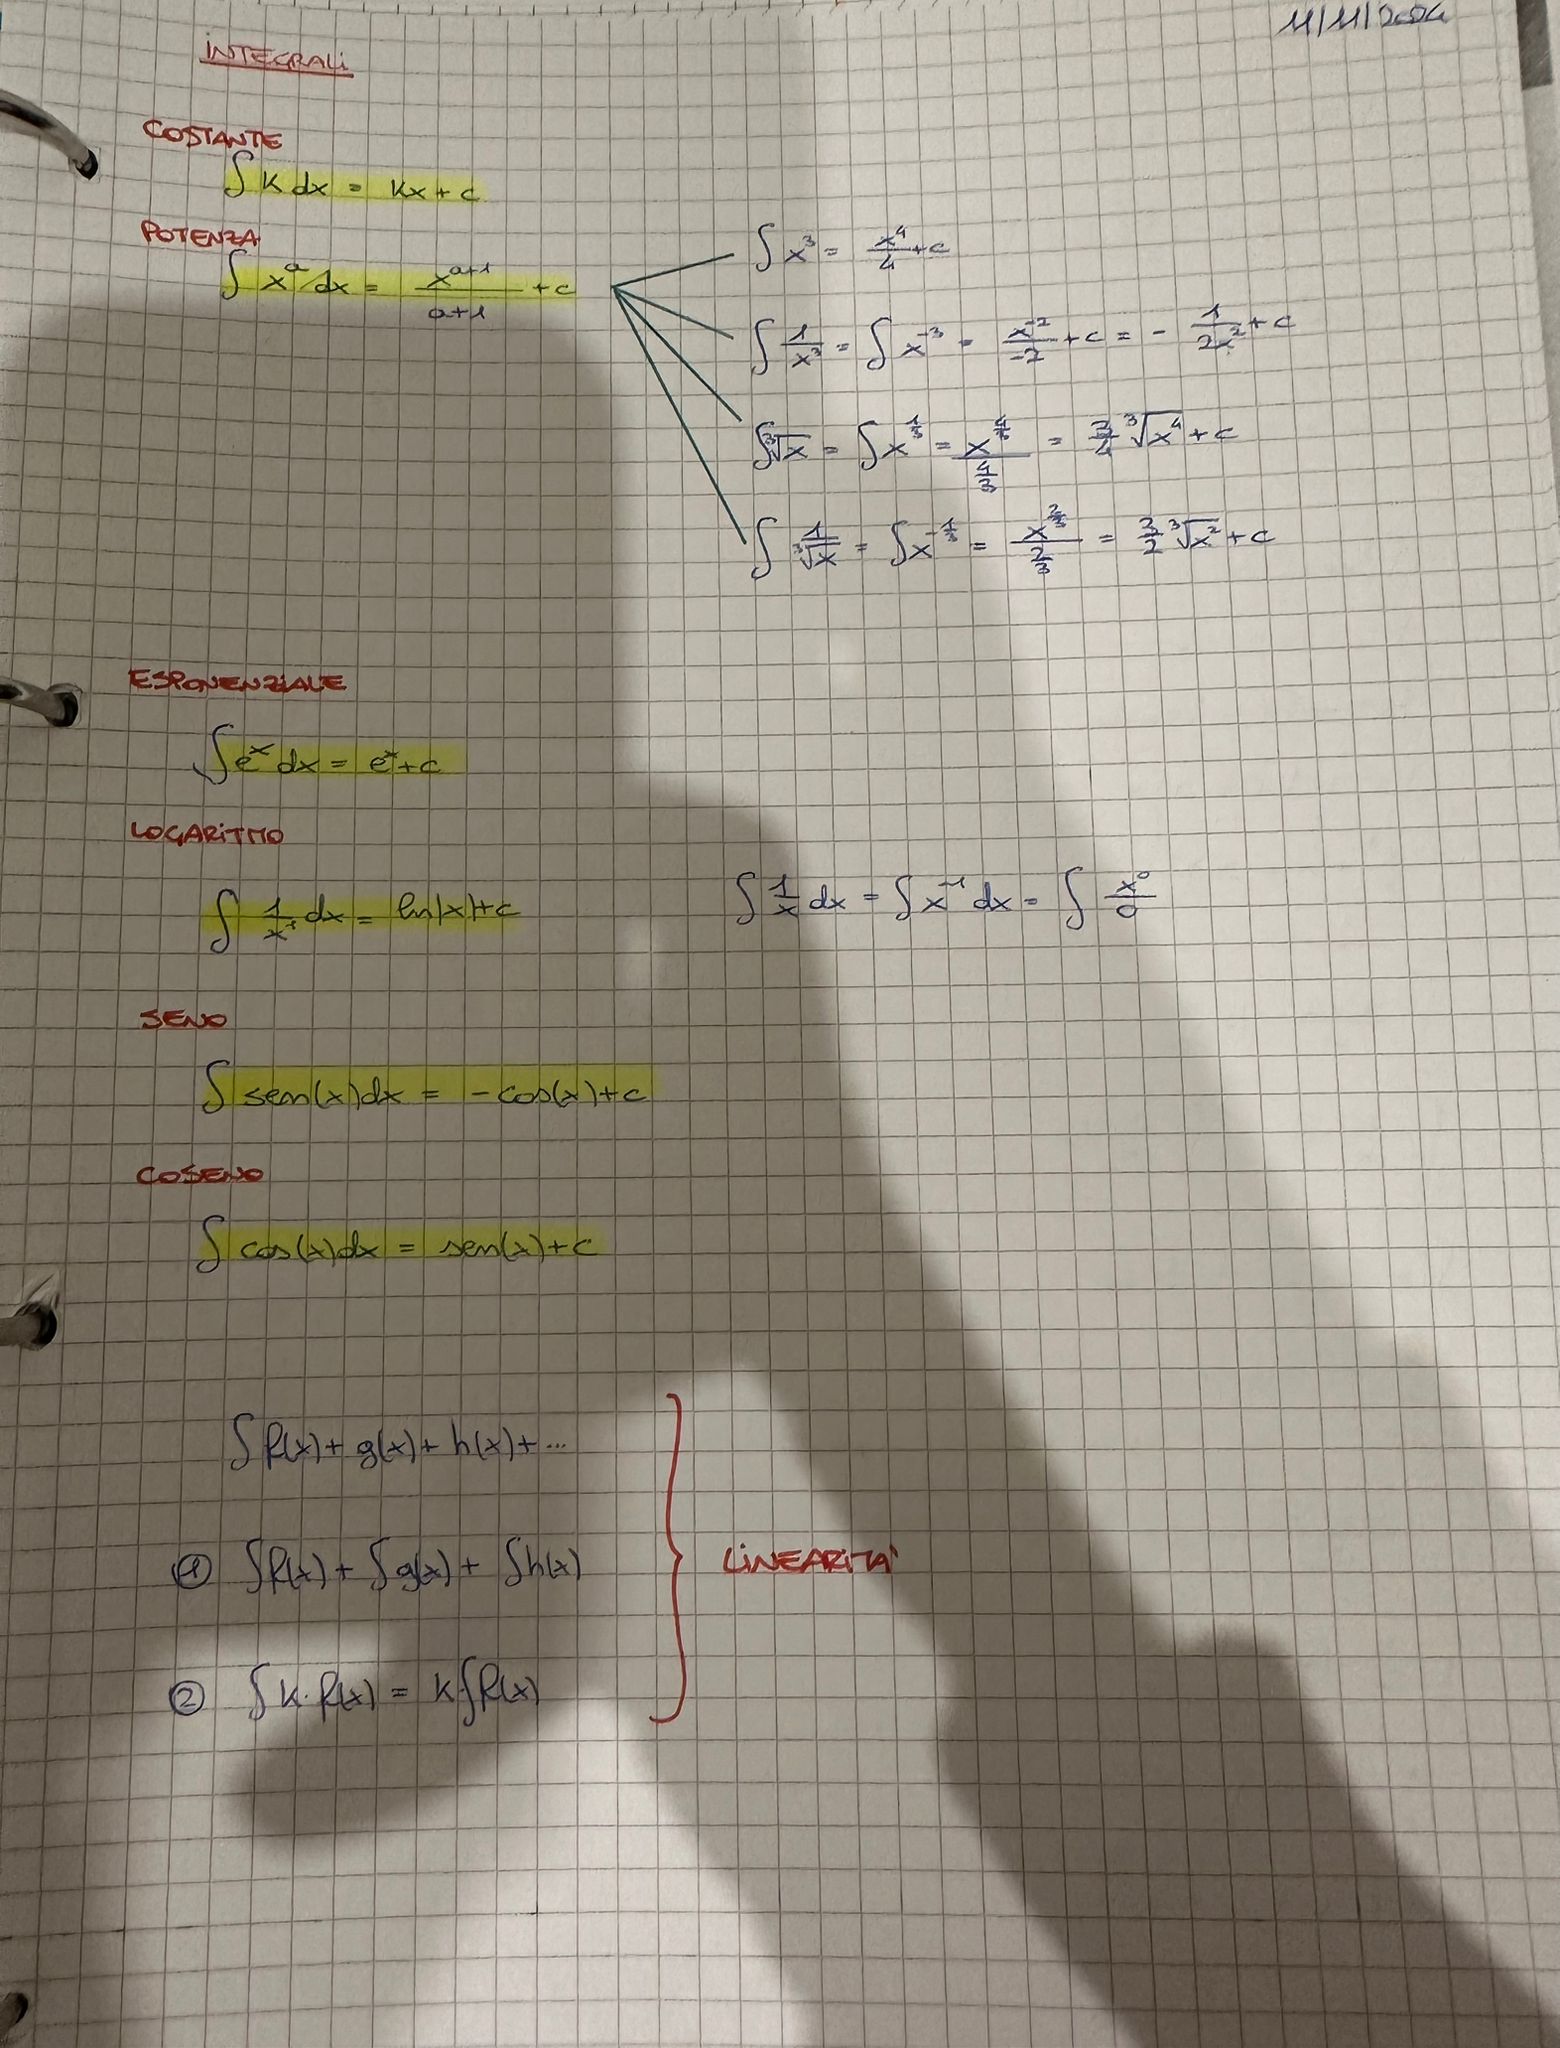 11/11/2024
INTEGRALI
COSTANTE
∫ K dx = Kx + c
POTENZA
∫ x^a dx = x^(a+1)/(a+1) + c
∫ x^3 = x^4/4 + c
∫ 1/x^3 = ∫ x^-3 = x^-2/-2 + c = - 1/(2x^2) + c
∫ ∛x = ∫ x^(1/3) = x^(4/3)/(4/3) = 3/4 ∛(x^4) + c
∫ 1/∛x = ∫ x^(-1/3) = x^(2/3)/(2/3) = 3/2 ∛(x^2) + c
ESPONENZIALE
∫ e^x dx = e^x + c
LOGARITMO
∫ 1/x^1 dx = ln|x| + c
∫ 1/x dx = ∫ x^-1 dx = ∫ x^0/0
SENO
∫ sen(x)dx = -cos(x)+c
COSENO
∫ cos(x)dx = sen(x)+c
∫ f(x) + g(x) + h(x) + ...
① ∫f(x) + ∫g(x) + ∫h(x)
LINEARITA'
② ∫ K·f(x) = K·∫f(x)